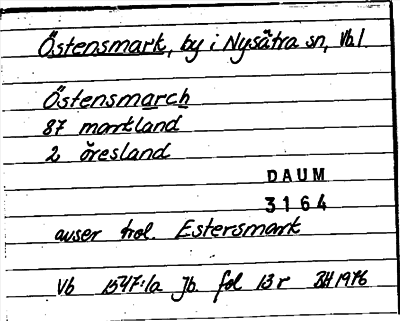 Östensmark, by i Nysätra sn, Vbl.
Östensmarch
87 markland
2 öresland
DAUM
3164
avser trol. Estersmark
Vb 1547:1a Jb. fol 13r BH 1976